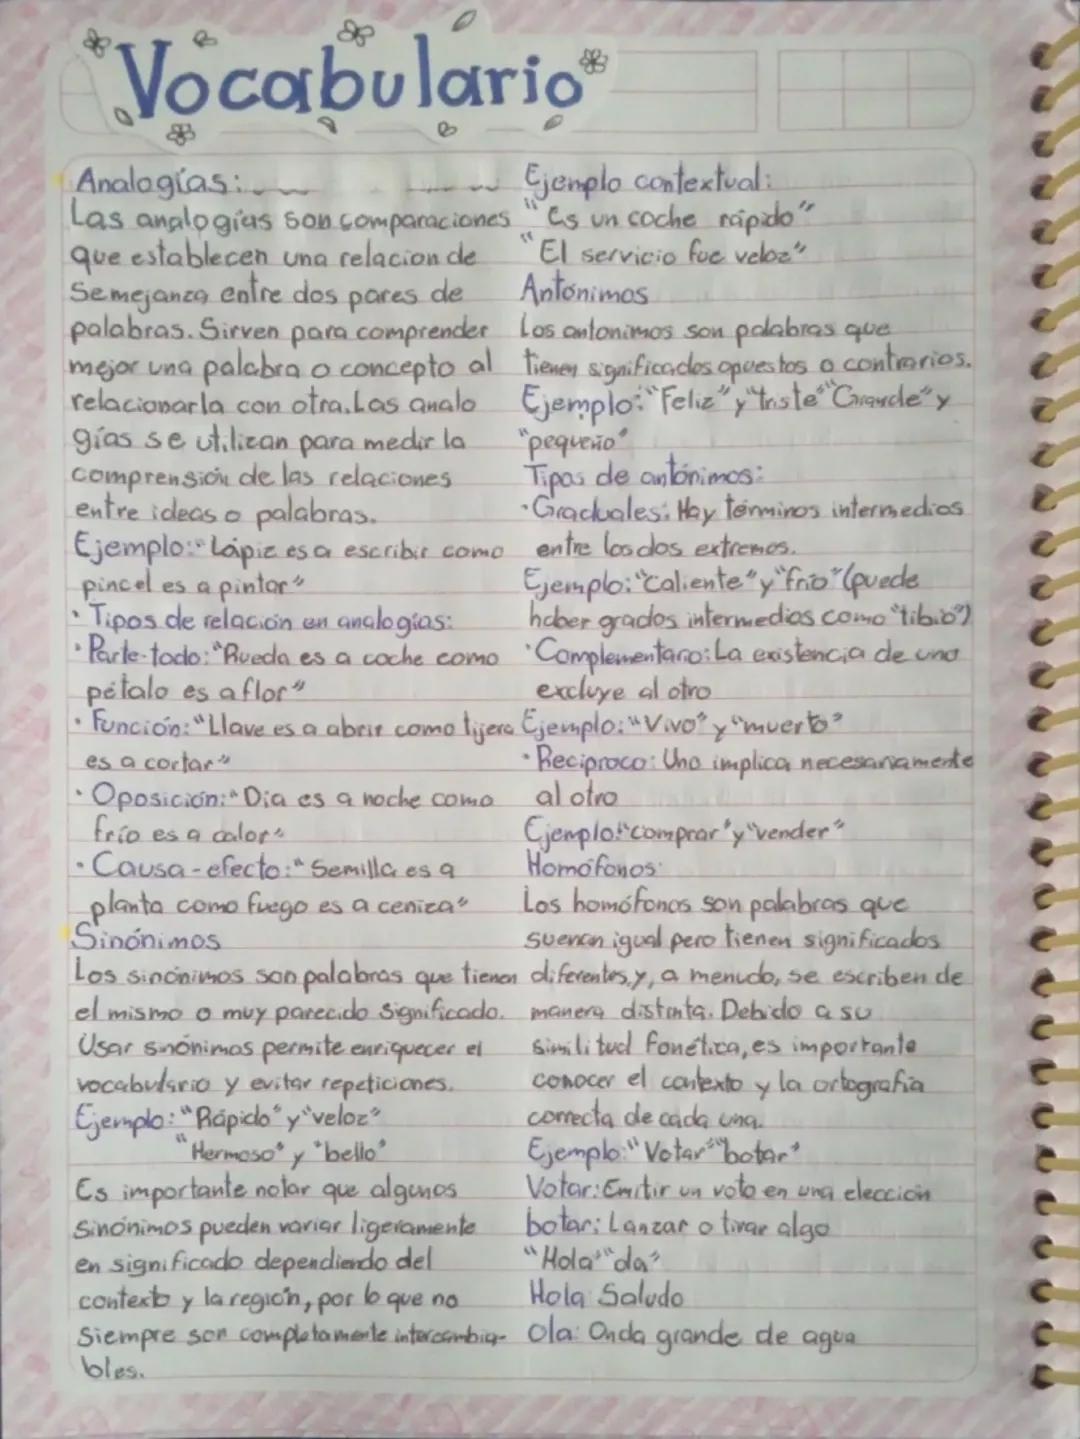 Vocabulario
Analogías:
Las analogías son comparaciones
que establecen una relacion de
Semejanza entre dos pares de
palabras. Sirven para comprender
mejor una palabra o concepto al
relacionarla con otra. Las analo
gías se utilizan para medir la
comprensión de las relaciones
entre ideas o palabras.
Ejemplo: "Lápiz es a escribir como
pincel es a pintar"
· Tipos de relación en analogías:
· Parte-todo: "Rueda es a coche como
pétalo es a flor"
· Función: "Llave es a abrir como tijera
es a cortar"
· Oposición: "Día es a noche como
frío es a calor"
· Causa-efecto: "Semilla es a
planta como fuego es a ceniza"
Sinónimos
Los sinónimos son palabras que tienen
el mismo o muy parecido significado.
Usar sinónimos permite enriquecer el
vocabulario y evitar repeticiones.
Ejemplo: "Rápido" y "veloz"
"Hermoso" y "bello"
Es importante notar que algunos
sinónimos pueden variar ligeramente
en significado dependiendo del
contexto y la región, por lo que no
siempre son completamente intercambia-
bles.
Ejemplo contextual:
"Es un coche rápido"
"El servicio fue veloz"
Antónimos
Los antonimos son palabras que
tienen significados opuestos o contrarios.
Ejemplo: "Feliz" y "triste" "Grande" y
"pequeño"
Tipos de antónimos:
· Graduales: Hay términos intermedios
entre los dos extremos.
Ejemplo: "caliente" y "frío" (puede
haber grados intermedios como "tibio")
· Complementario: La existencia de uno
excluye al otro
Ejemplo: "Vivo" y "muerto"
· Reciproco: Uno implica necesariamente
al otro
Ejemplo: "comprar" y "vender"
Homófonos:
Los homófonos son palabras que
suenan igual pero tienen significados
diferentes, y, a menudo, se escriben de
manera distinta. Debido a su
similitud fonética, es importante
conocer el contexto y la ortografía
correcta de cada una.
Ejemplo: "Votar" "botar"
Votar: Emitir un voto en una elección
botar: Lanzar o tirar algo
"Hola" "ola"
Hola: Saludo
Ola: Onda grande de agua